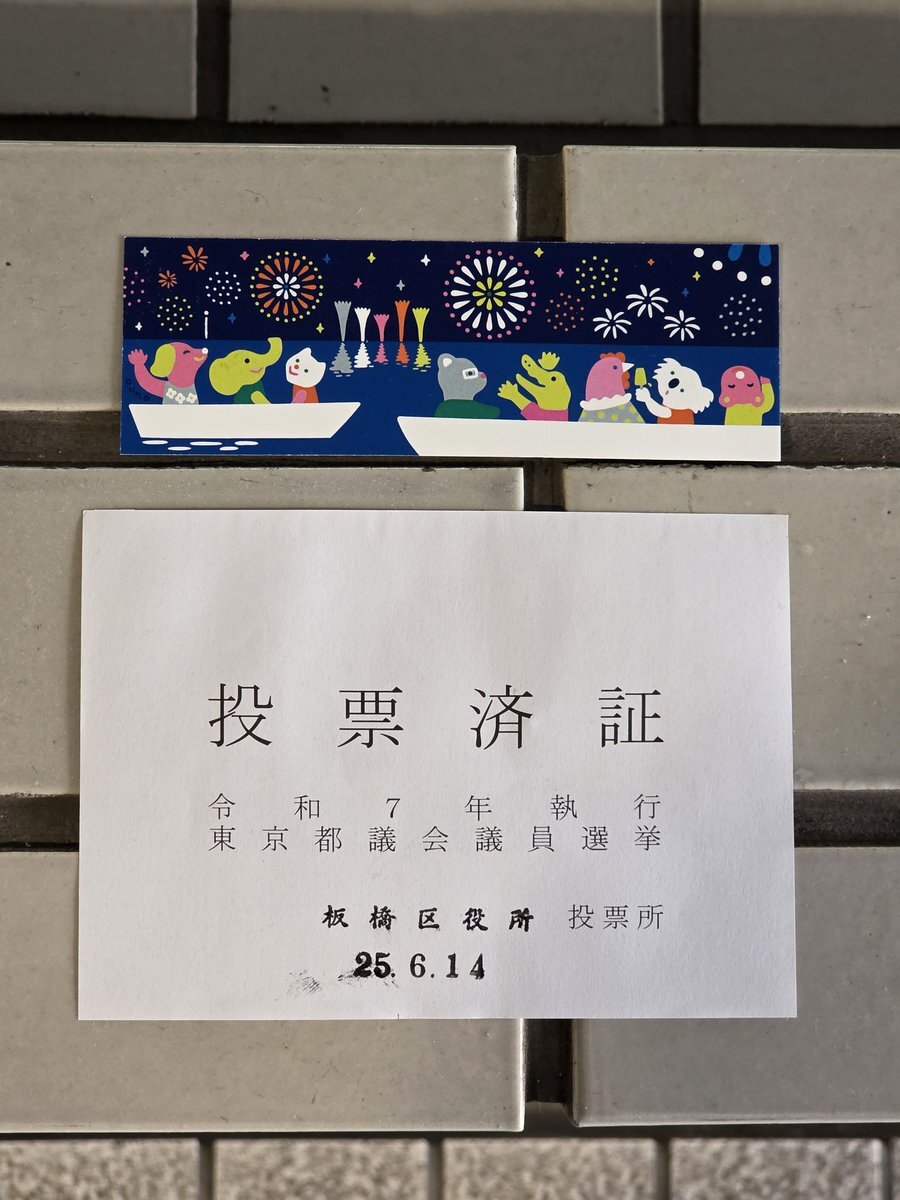 投票済証
令和7年執行
東京都議会議員選挙
板橋区役所 投票所
25.6.14